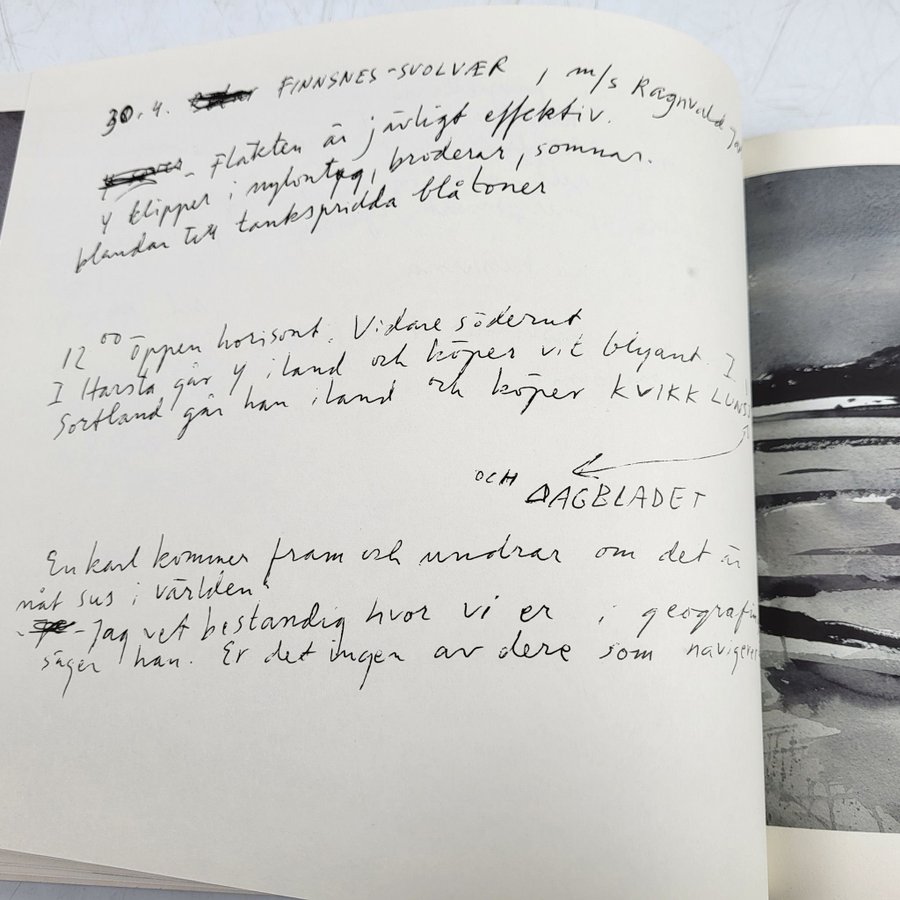 30.4. FINNSNES-SVOLVÆR, m/s Ragnvald
- Fläkten är jävligt effektiv.
Y klipper i nylontyg, broderar, somnar.
blandar till tankspridda blåtoner
12 00 öppen horisont. Vidare söderut
I Harsta går Y iland och köper vit blyant. I
Sortland går han iland och köper KVIKK LUNSJ
OCH DAGBLADET
En karl kommer fram och undrar om det är
nåt sus i världen"
- Jag vet bestandig hvor vi er, i geografin
säger han. Er det ingen av dere som navigerer